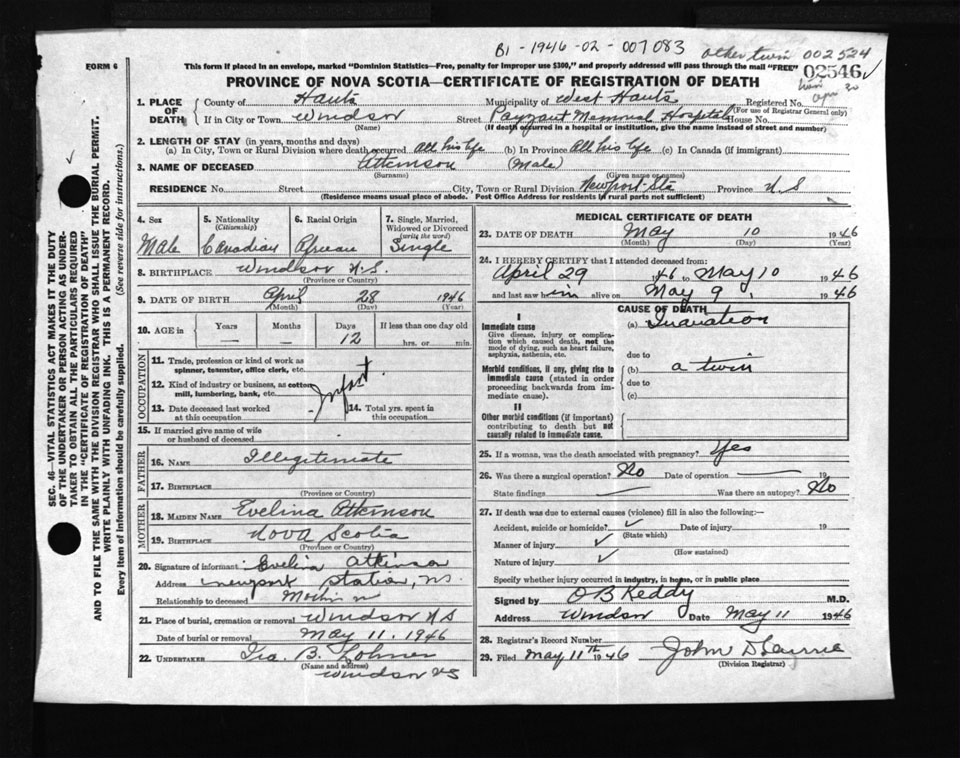 B1-1946-02-007083
other twin 002524
02546 ✓
FORM 6
This form if placed in an envelope, marked "Dominion Statistics—Free, penalty for improper use $300," and properly addressed will pass through the mail "FREE"
PROVINCE OF NOVA SCOTIA—CERTIFICATE OF REGISTRATION OF DEATH
1. PLACE OF DEATH
County of Hants Municipality of West Hants Registered No.
(For use of Registrar General only)
If in City or Town Windsor Street Payzant Memorial Hospital House No.
(Name) (If death occurred in a hospital or institution, give the name instead of street and number)
2. LENGTH OF STAY (in years, months and days)
(a) In City, Town or Rural Division where death occurred All his life (b) In Province All his life (c) In Canada (if immigrant)
3. NAME OF DECEASED Atkinson (Male)
(Surname) (Given name or names)
RESIDENCE No. Street City, Town or Rural Division Newport Sta Province N S
(Residence means usual place of abode. Post Office Address for residents in rural parts not sufficient)
4. Sex Male
5. Nationality (Citizenship) Canadian
6. Racial Origin African
7. Single, Married, Widowed or Divorced (write the word) Single
8. BIRTHPLACE Windsor N.S.
(Province or Country)
9. DATE OF BIRTH April 28 1946
(Month) (Day) (Year)
10. AGE in Years — Months — Days 12 If less than one day old hrs. or min.
OCCUPATION
11. Trade, profession or kind of work as spinner, teamster, office clerk, etc.
12. Kind of industry or business, as cotton mill, lumbering, bank, etc.
Infant
13. Date deceased last worked at this occupation
14. Total yrs. spent in this occupation
15. If married give name of wife or husband of deceased
FATHER
16. NAME Illegitimate
17. BIRTHPLACE
(Province or Country)
MOTHER
18. MAIDEN NAME Evelina Atkinson
19. BIRTHPLACE Nova Scotia
(Province or Country)
20. Signature of informant Evelina Atkinson
Address Newport Station, N.S.
Relationship to deceased
21. Place of burial, cremation or removal Windsor N S
Date of burial or removal May 11. 1946
22. UNDERTAKER Ira. B.
(Name and address)
Windsor NS
MEDICAL CERTIFICATE OF DEATH
23. DATE OF DEATH May 10 1946
(Month) (Day) (Year)
24. I HEREBY CERTIFY that I attended deceased from:
April 29 1946 to May 10 1946
and last saw him alive on May 9, 1946
CAUSE OF DEATH
I
Immediate cause
Give disease, injury or complication which caused death, not the mode of dying, such as heart failure, asphyxia, asthenia, etc.
(a) Inanation
due to
Morbid conditions, if any, giving rise to immediate cause (stated in order proceeding backwards from immediate cause).
(b) a twin
due to
(c)
II
Other morbid conditions (if important) contributing to death but not causally related to immediate cause.
25. If a woman, was the death associated with pregnancy? Yes
26. Was there a surgical operation? No Date of operation — 19
State findings — Was there an autopsy? No
27. If death was due to external causes (violence) fill in also the following:
Accident, suicide or homicide? ✓ Date of injury 19
(State which)
Manner of injury ✓
(How sustained)
Nature of injury ✓
Specify whether injury occurred in industry, in home, or in public place
Signed by O B Reddy M.D.
Address Windsor Date May 11 1946
28. Registrar's Record Number
29. Filed May 11th 1946 John D
(Division Registrar)
SEC. 46—VITAL STATISTICS ACT MAKES IT THE DUTY
OF THE UNDERTAKER OR PERSON ACTING AS UNDER-
TAKER TO OBTAIN ALL THE PARTICULARS REQUIRED
IN THE "CERTIFICATE OF REGISTRATION OF DEATH"
AND TO FILE THE SAME WITH THE DIVISION REGISTRAR WHO SHALL ISSUE THE BURIAL PERMIT.
WRITE PLAINLY WITH UNFADING INK. THIS IS A PERMANENT RECORD.
Every item of information should be carefully supplied. (See reverse side for instructions.)